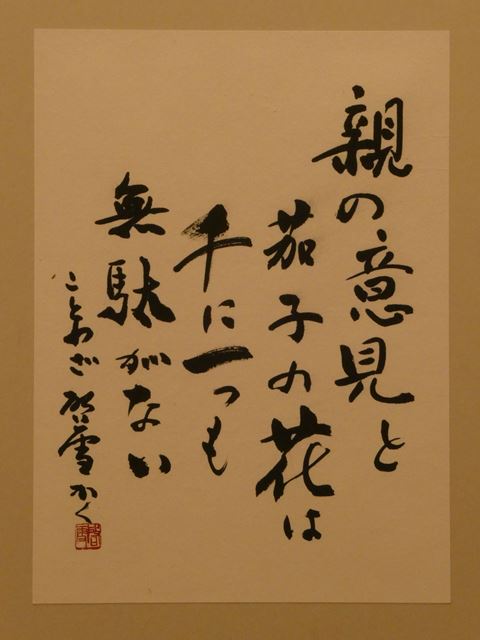 親の意見と
茄子の花は
千に一つも
無駄がない
ことわざ 啓雪かく